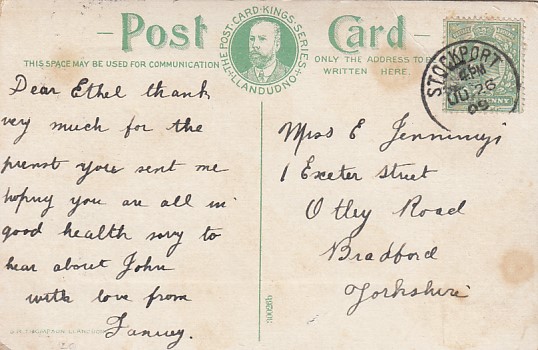 Post Card
THE POST-CARD-KINGS-SERIES
LLANDUDNO
THIS SPACE MAY BE USED FOR COMMUNICATION
ONLY THE ADDRESS TO BE
WRITTEN HERE.
STOCKPORT
PM
26
09
PENNY
Dear Ethel thank
very much for the
presnt you sent me
hoping you are all in
good health sorry to
hear about John
with love from
Fanny.
Miss E Jennings
1 Exeter Street
Otley Road
Bradford
Yorkshire
THOMPSON, LLANDUDNO